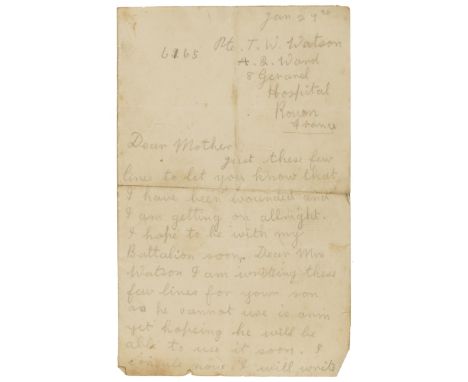 Jan 29th
6165 Pte. T. W. Watson
A. 2. Ward
8 Geranel
Hospital
Rouon
France
Dear Mother
just these few
lines to let you know that
I have been wounded and
I am getting on allright.
I hope to be with my
Battalion soon. Dear Mrs
Watson I am writing these
few lines for your son
as he cannot use is arm
yet hopeing he will be
able to use it soon. I
now. I will write